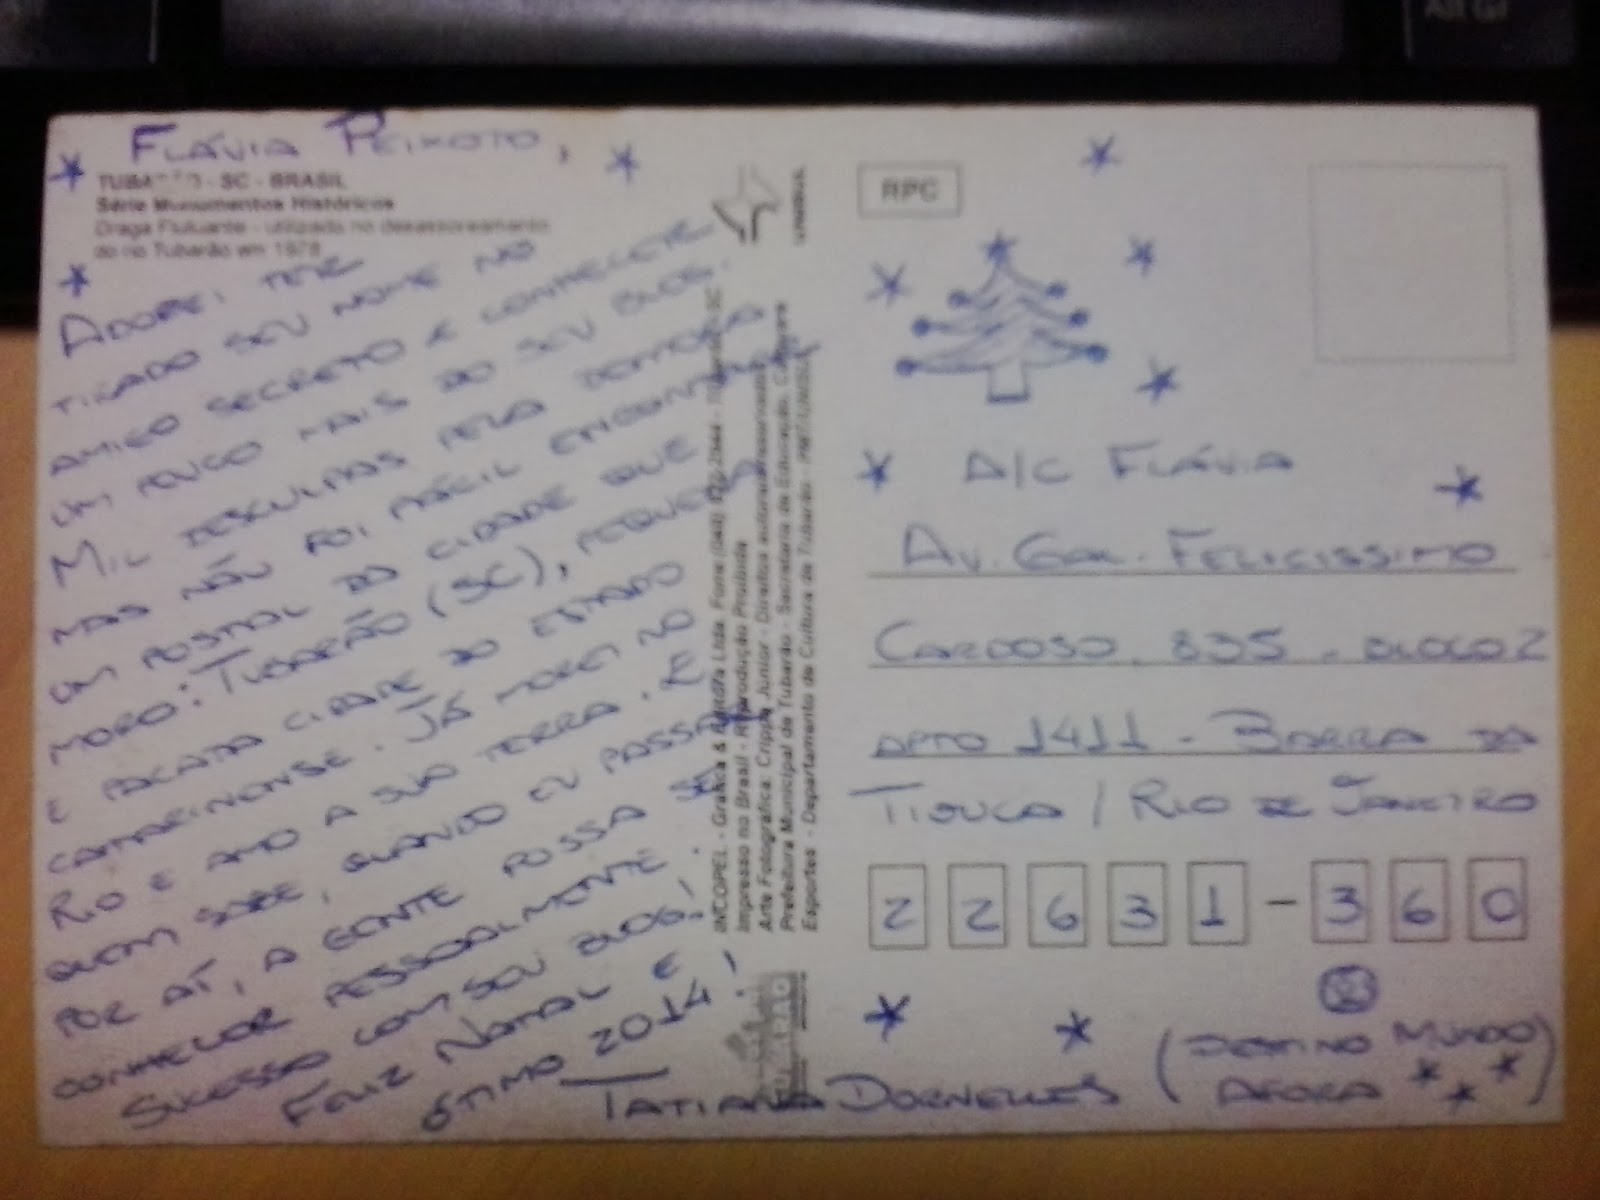 Alt Gr
FLÁVIA PEIXOTO,
TUBARÃO - SC - BRASIL
Série Monumentos Históricos
Draga Flutuante - utilizada no desassoreamento
do rio Tubarão em 1978
ADOREI TER
TIRADO SEU NOME NO
AMIGO SECRETO E CONHECER
UM POUCO MAIS DO SEU BLOG.
MIL DESCULPAS PELA DEMORA
MAS NÃO FOI FÁCIL ENCONTRAR
UM POSTAL DA CIDADE QUE
MORO: TUBARÃO (SC), PEQUENA
E PACATA CIDADE DO ESTADO
CATARINENSE. JÁ MOREI NO
RIO E AMO A SUA TERRA. E
QUEM SABE, QUANDO EU PASSAR
POR AÍ, A GENTE POSSA SE
CONHECER PESSOALMENTE.
SUCESSO COM SEU BLOG!
FELIZ NATAL E
ÓTIMO 2014!
TATIANA DORNELLES
(DESTINO MUNDO
AFORA)
UNISUL
INCOPEL - Gráfica & Editora Ltda. Fone: (048)
Impresso no Brasil - Reprodução Proibida
Arte Fotográfica: Crippa Júnior - Direitos
Prefeitura Municipal de Tubarão - Secretaria da Educação, Cultura
Esportes - Departamento de Cultura de Tubarão -
RPC
A/C FLÁVIA
AV. GAL. FELICISSIMO
CARDOSO, 835 - BLOCO 2
APTO 1411 - BARRA DA
TIJUCA / RIO DE JANEIRO
22631-360